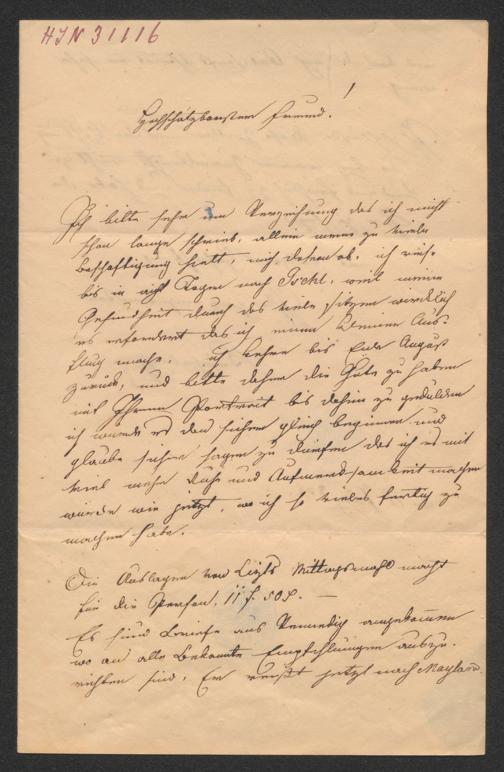 HIN 31116
Hochschätzbarster Freund!
Ich bitte sehr um Verzeihung das ich nicht
schon lange schrieb, allein meine zu viele
Beschäftigung hielt mich davon ab. ich reise
bis in acht Tagen nach Ischl, weil meine
Gesundheit durch das viele sitzen wirklich
es erfordert das ich einen kleinen Aus-
flug mache. ich kehre bis Ende August
zurück, und bitte daher die Güte zu haben
mit Ihrem Portrait bis dahin zu gedulden
ich würde es dan sicher gleich beginnen und
glaube sicher sagen zu dürfen das ich es mit
viel mehr Ruhe und Aufmerksamkeit machen
würde wie jetzt, wo ich so vieles fertig zu
machen habe.
Die Auslagen von Lizts Mittagsmahl macht
für die Person, 11 f. 50 x. —
Es sind Briefe aus Venedig angekommen
wo an alle Bekannte Empfehlungen auszu-
richten sind. Er reist jetzt nach Mayland.